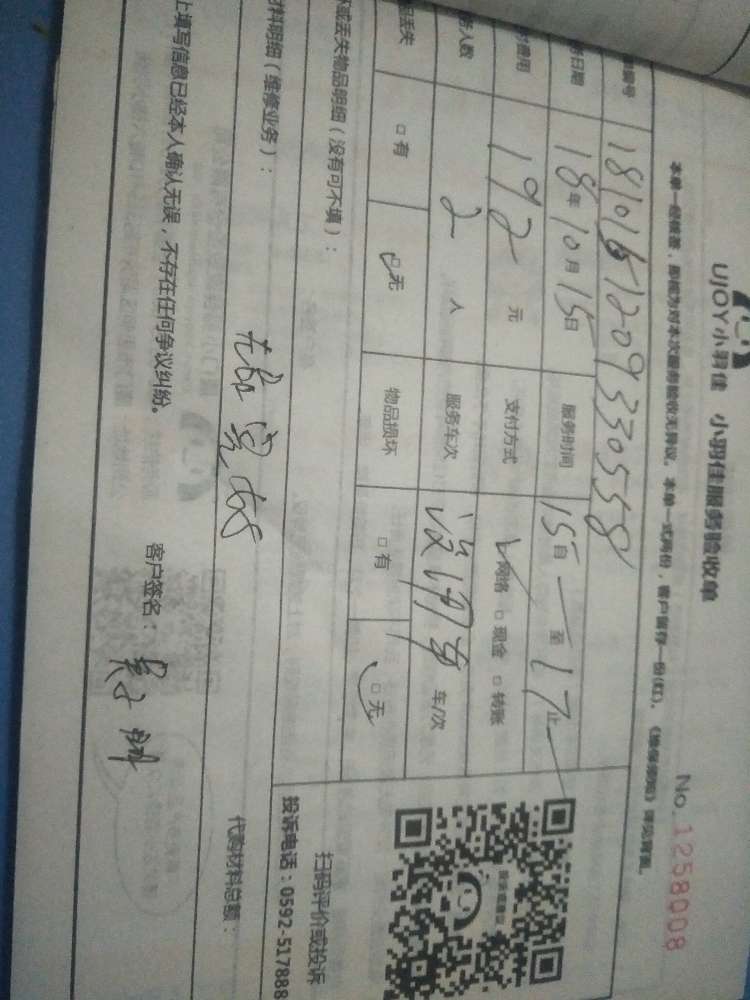 UJOY小羽佳 小羽佳服务验收单
No.1258008
本单一经核签，即视为对本次服务验收无异议。本单一式两份，客户留存一份(红)。
编号 181015120933055 8
日期 18年10月15日 服务时间 15自 至17止
费用 192元 支付方式 网络 □ 现金 □ 转账
人数 2人 服务车次 没问题 车/次
丢失 □有 □无 物品损坏 □有 □无
或丢失物品明细（没有可不填）：
扫码评价或投诉
投诉电话：0592-517888
料明细（维修业务）：
代购材料总额：
上填写信息已经本人确认无误，不存在任何争议纠纷。
客户签名：